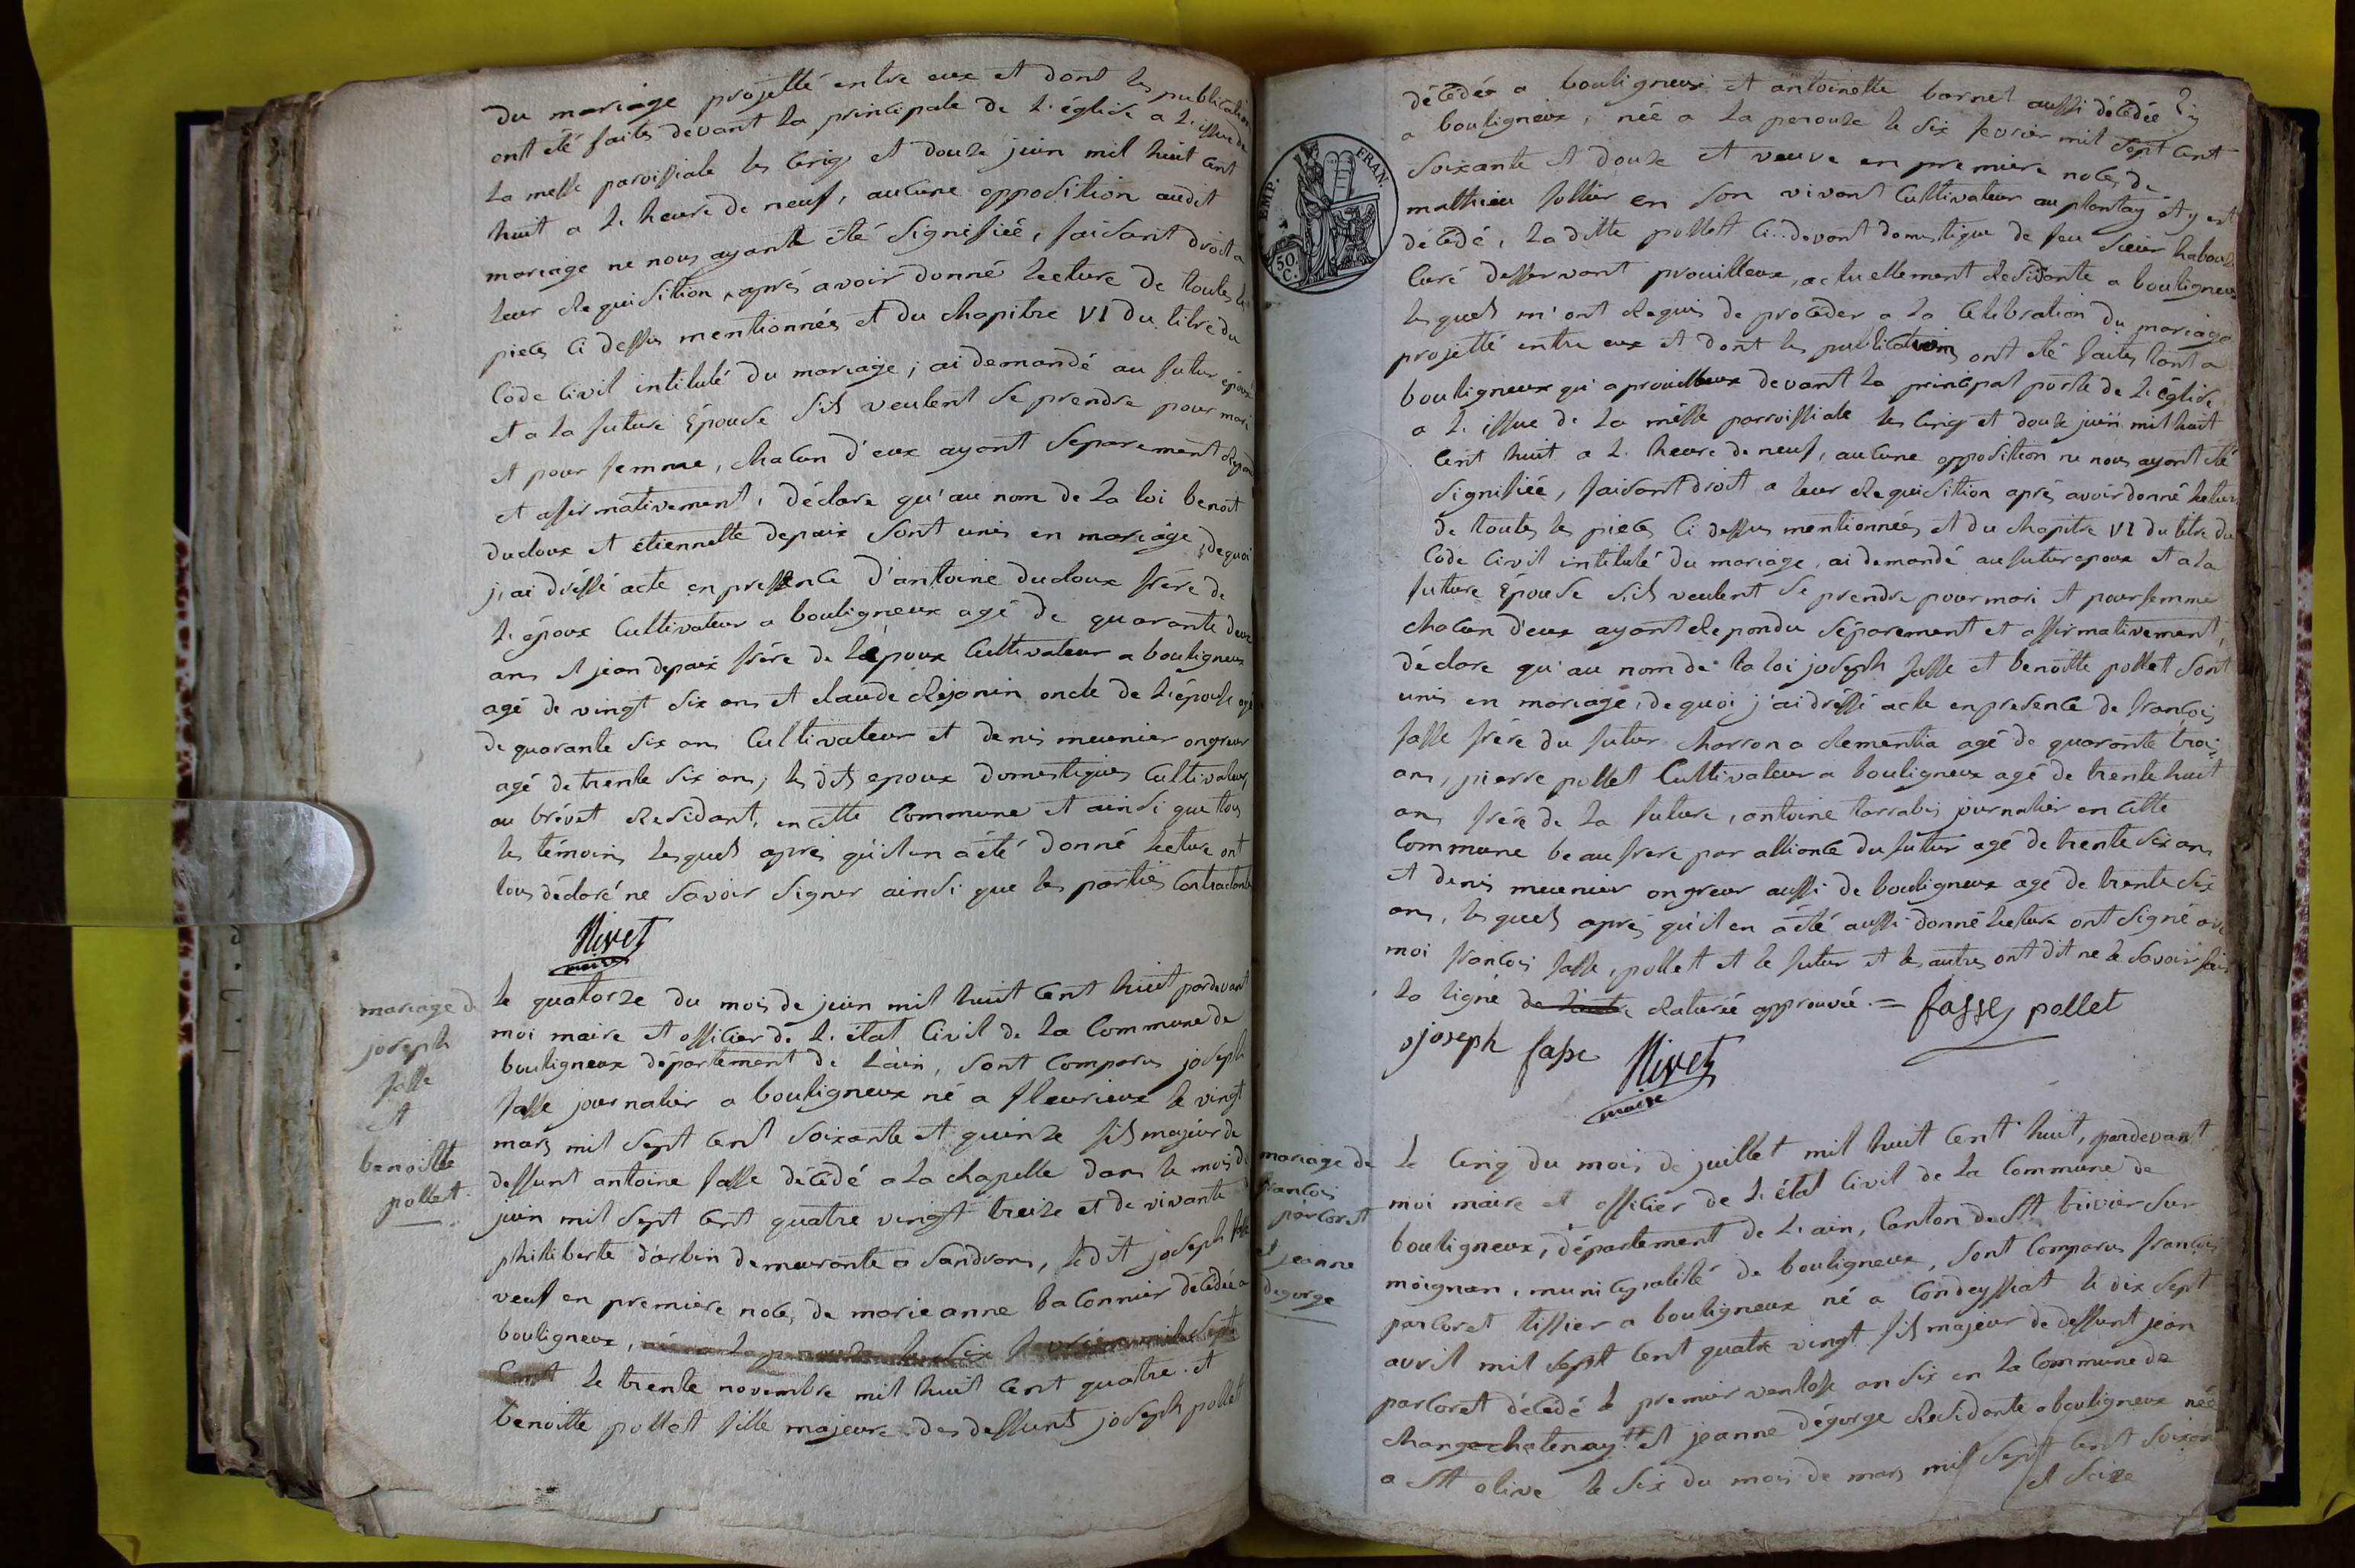 du mariage projetté entre eux et dont les publication
ont été faites devant la principale de l'église a l'issue de
la messe paroissiale les cinq et douze juin mil huit cent
huit a l'heure de neuf, aucune opposition audit
mariage ne nous ayante été signifiée, faisant droit a
leur requisition, après avoir donné lecture de toutes les
pieces ci dessus mentionnées et du chapitre VI du titre du
code civil intitulé du mariage; ai demandé au futur époux
et a la future Epouse s'ils veulent se prendre pour mari
et pour femme, chacun d'eux ayant separement repondu
et affirmativement, déclare qu'au nom de la loi benoit
ducloux et étiennette depaix sont unis en mariage, de quoi
j'ai dréssé acte en presence d'antoine ducloux frère de
l'époux cultivateur a bouligneux agé de quarante deux
ans et jean depaix frère de lépoux cultivateur a bouligneux
agé de vingt six ans et claude rejanin oncle de l'épouse agé
de quarante six ans cultivateur et denis meunier ongreur
agé de trente six ans; les dits epoux domestiques cultivateurs
au brévet residant, en cette commune et ainsi que tous
les témoins lesquels après qu'il en a été donné lecture ont
tous déclaré ne savoir signer ainsi que les parties contractantes
Nivet
maire
mariage de
joseph
fasse
et
benoitte
pollet
le quatorze du mois de juin mil huit cent huit pardevant
moi maire et officier de l'état civil de la commune de
bouligneux département de l'ain, sont comparus joseph
fasse journalier a bouligneux né a fleurieux le vingt
mars mil sept cent soixante et quinze fils majeur de
deffunt antoine fasse décédé a la chapelle dans le mois de
juin mil sept cent quatre vingt treize et de vivante
philiberte d'arbin demeurante a sandrans, ledit joseph fasse
veuf en premiere noces de marie anne baconnier décédée a
bouligneux, née a la perouze le six fevrier mil sept
cent le trente novembre mil huit cent quatre. et
benoitte pollet fille majeure des deffunts joseph pollet
EMP. FRAN.
50
C.
décédée a bouligneux et antoinette barnet aussi décédée
a bouligneux, née a la perouze le six fevrier mil sept cent
soixante et douze et veuve en premiere noces de
mathieu sollier en son vivant cultivateur au plantay et y est
décédé, la ditte pollet ci..devant domestique de feu sieur
curé desservant prouilleux, actuellement residante a bouligneux
lesquels m'ont requis de procéder a la celebration du mariage
projetté entre eux et dont les publications ont été faites tant a
bouligneux qu'a prouilleux devant la principal porte de l'église
a l'issue de la mésse parroissiale les cinq et douze juin mil huit
cent huit a l'heure de neuf, aucune opposition ne nous ayant été
signifiée, faisant droit a leur requisition après avoir donné lecture
de toutes les pieces ci dessus mentionnées et du chapitre VI du titre du
code civil intitulé du mariage, ai demandé au futur epoux et a la
future Epouse s'ils veulent se prendre pour mari et pour femme
chacun d'eux ayant repondu séparement et affirmativement,
déclare qu'au nom de la loi joseph fasse et benoitte pollet sont
unis en mariage, de quoi j'ai dréssé acte en presence de françois
fasse frère du futur charron a rementia agé de quarante trois
ans, pierre pollet cultivateur a bouligneux agé de trente huit
ans frère de la future, antoine tarrabis journalier en cette
commune beau frere par alliance du futur agé de trente six ans
et denis meunier ongreur aussi de bouligneux agé de trente six
ans, lesquels après qu'il en a été aussi donné lecture ont signé avec
moi françois fasse, pollet et le futur et les autres ont dit ne le savoir faire
la ligne raturée approuvée. = fasse pollet
joseph fasse Nivet
maire
mariage de
francois
parcoret
et jeanne
degorge
le cinq du mois de juillet mil huit cent huit, pardevant
moi maire et officier de l'état civil de la commune de
bouligneux, département de l'ain, canton de St trivier sur
moignan, municipalité de bouligneux, sont comparus françois
parcoret tissier a bouligneux né a condeyssiat le dix sept
avril mil sept cent quatre vingt fils majeur de deffunt jean
parcoret décédé le premier ventose an six en la commune de
chatenay et jeanne dégorge residante a bouligneux née
a St olive le six du mois de mars mil sept cent soixante
et seize